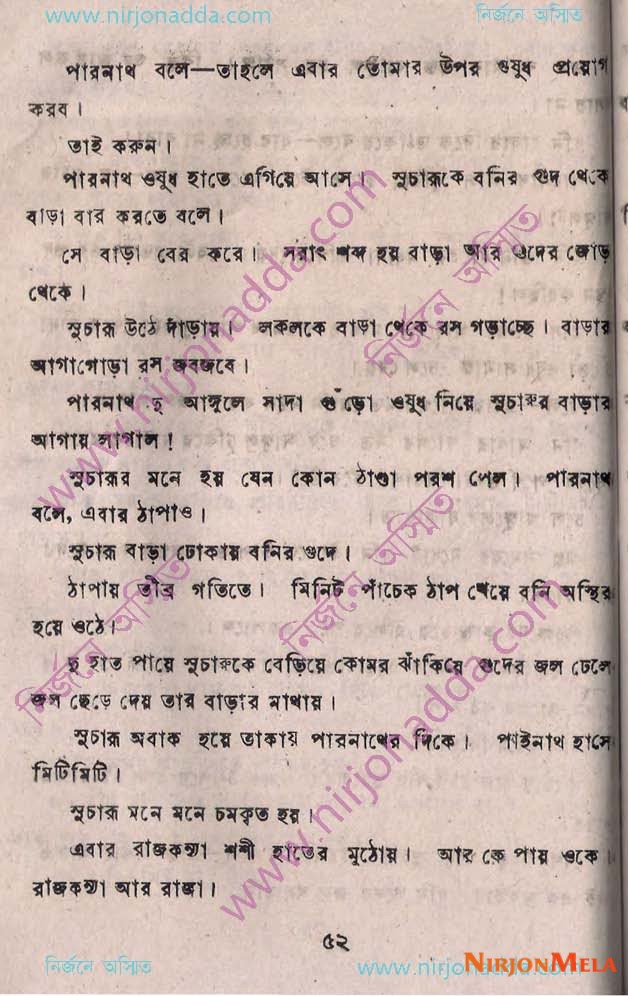 www.nirjonadda.com নির্জনে অস্মিত
পারনাথ বলে—তাহলে এবার তোমার উপর ওষুধ প্রয়োগ
করব।
তাই করুন।
পারনাথ ওষুধ হাতে এগিয়ে আসে। সুচারুকে বনির গুদ থেকে
বাড়া বার করতে বলে।
সে বাড়া বের করে। সরাৎ শব্দ হয় বাড়া আর গুদের জোড়
থেকে।
সুচারু উঠে দাঁড়ায়। লকলকে বাড়া থেকে রস গড়াচ্ছে। বাড়ার
আগাগোড়া রস জবজবে।
পারনাথ দু আঙ্গুলে সাদা গুঁড়ো ওষুধ নিয়ে সুচারুর বাড়ার
আগায় লাগাল!
সুচারুর মনে হয় যেন কোন ঠাণ্ডা পরশ পেল। পারনাথ
বলে, এবার ঠাপাও।
সুচারু বাড়া ঢোকায় বনির গুদে।
ঠাপায় তীর গতিতে। মিনিট পাঁচেক ঠাপ খেয়ে বনি অস্থির
হয়ে ওঠে।
দু হাত পায়ে সুচারুকে বেড়িয়ে কোমর ঝাঁকিয়ে গুদের জল ঢেলে
জল ছেড়ে দেয় তার বাড়ার মাথায়।
সুচারু অবাক হয়ে তাকায় পারনাথের দিকে। পাইনাথ হাসে
মিটিমিটি।
সুচারু মনে মনে চমকৃত হয়।
এবার রাজকন্যা শশী হাতের মুঠোয়। আর কে পায় ওকে।
রাজকন্যা আর রাজা।
www.nirjonadda.com নির্জনে অস্মিত
www.nirjonadda.com নির্জনে অস্মিত
৫২
নির্জনে অস্মিত www.nirjonadda.com
NIRJONMELA